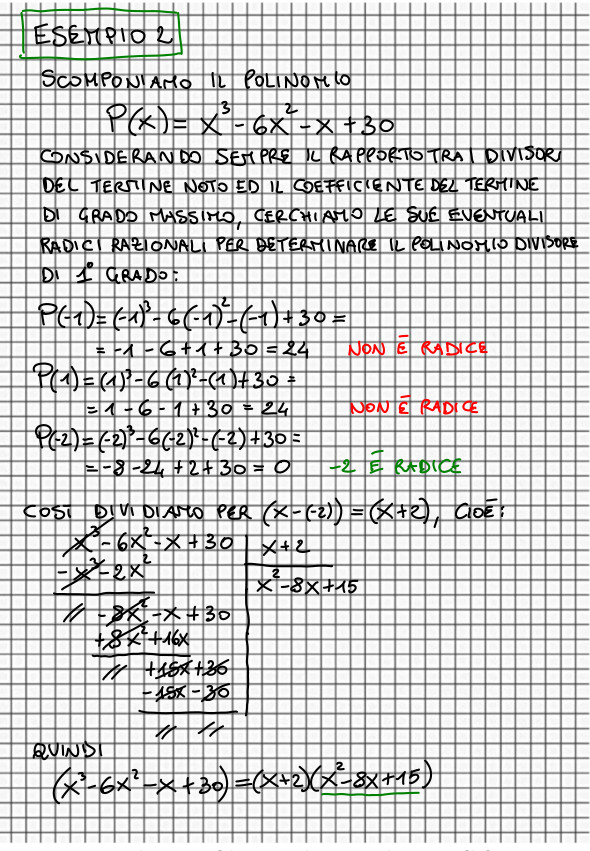 ESEMPIO 2
SCOMPONIAMO IL POLINOMIO
P(x) = x³ - 6x² - x + 30
CONSIDERANDO SEMPRE IL RAPPORTO TRA I DIVISORI
DEL TERMINE NOTO ED IL COEFFICIENTE DEL TERMINE
DI GRADO MASSIMO, CERCHIAMO LE SUE EVENTUALI
RADICI RAZIONALI PER DETERMINARE IL POLINOMIO DIVISORE
DI 1° GRADO:
P(-1) = (-1)³ - 6(-1)² - (-1) + 30 =
= -1 - 6 + 1 + 30 = 24 NON È RADICE
P(1) = (1)³ - 6(1)² - (1) + 30 =
= 1 - 6 - 1 + 30 = 24 NON È RADICE
P(-2) = (-2)³ - 6(-2)² - (-2) + 30 =
= -8 - 24 + 2 + 30 = 0 -2 È RADICE
COSÌ DIVIDIAMO PER (x - (-2)) = (x + 2), CIOÈ:
x³ - 6x² - x + 30 x + 2
- x³ - 2x² x² - 8x + 15
// - 8x² - x + 30
+ 8x² + 16x
// + 15x + 30
- 15x - 30
// //
QUINDI
(x³ - 6x² - x + 30) = (x + 2)(x² - 8x + 15)